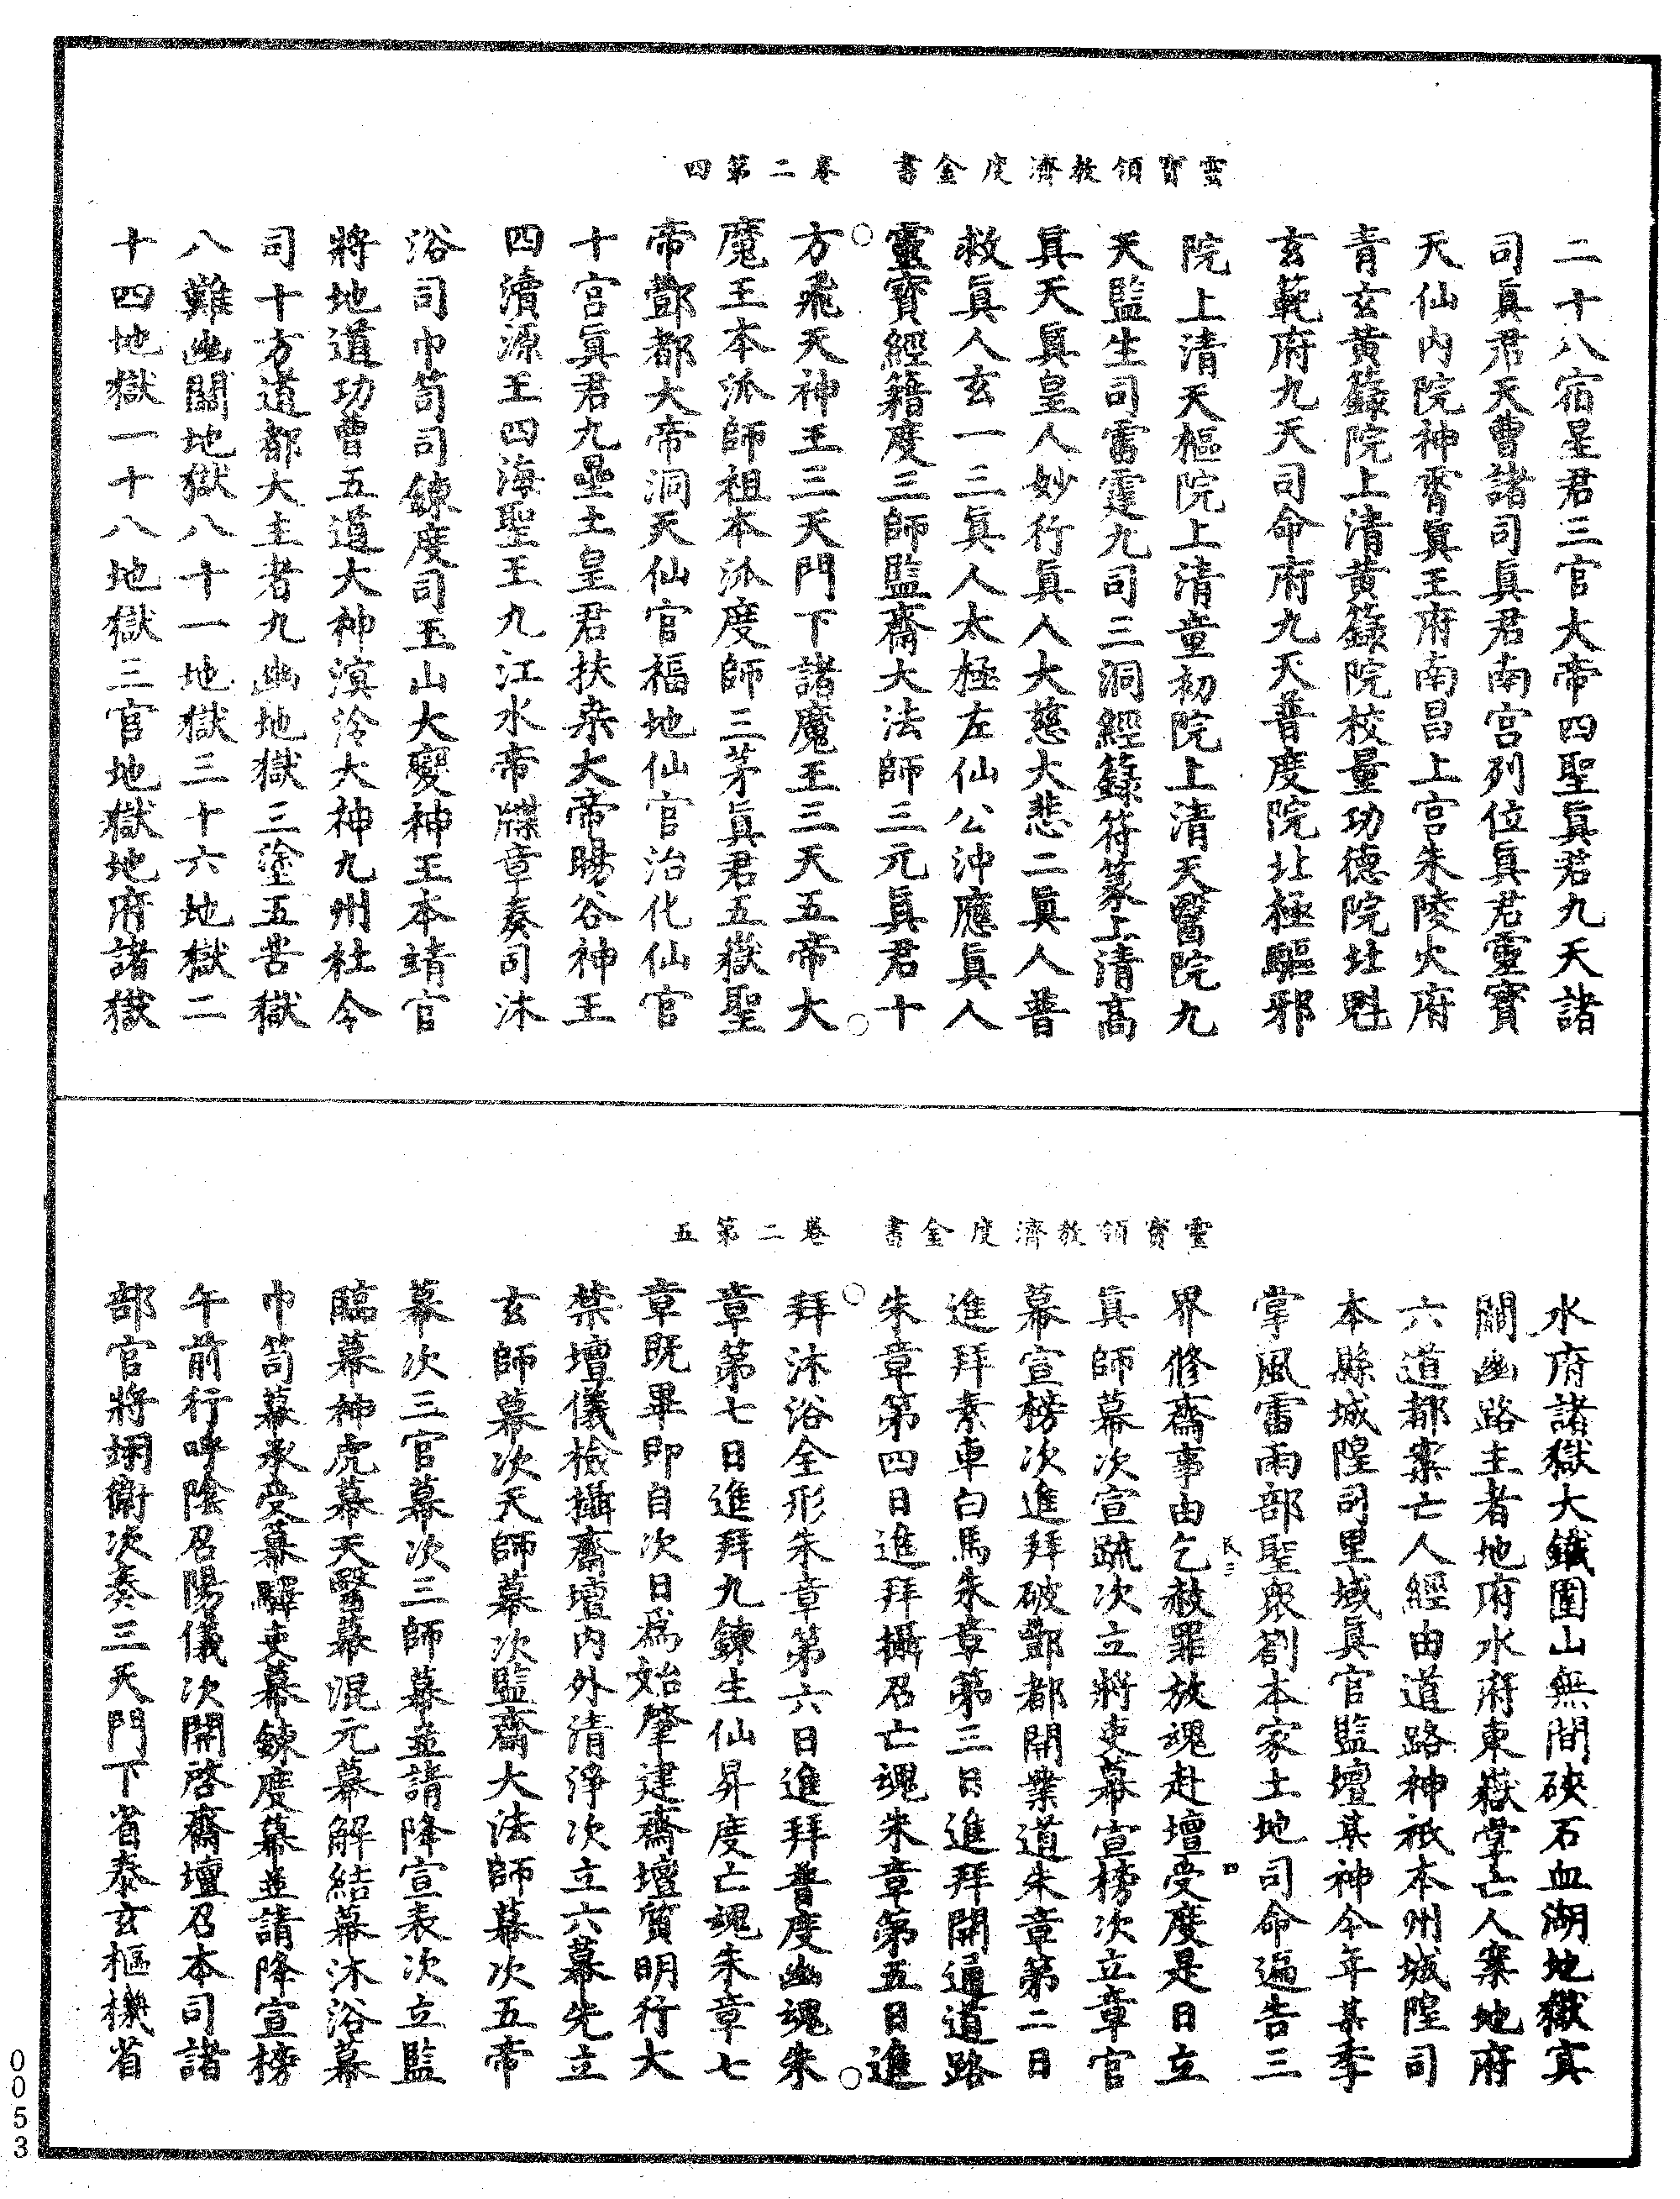 靈寶領教濟度金書　卷二第四
二十八宿星君三官大帝四聖眞君九天諸
司眞君天曹諸司眞君南宮列位眞君靈寶
天仙內院神霄眞王府南昌上宮朱陵火府
青玄黃籙院上清黃籙院校量功德院北魁
玄範府九天司命府九天普度院北極驅邪
院上清天樞院上清童初院上清天醫院九
天監生司雷霆九司三洞經籙符篆上清高
眞天眞皇人妙行眞人大慈大悲二眞人普
救眞人玄一三眞人太極左仙公沖應眞人
靈寶經籍度三師監齋大法師三元眞君十
方飛天神王三天門下諸魔王三天五帝大
魔王本派師祖本派度師三茅眞君五嶽聖
帝酆都大帝洞天仙官福地仙官治化仙官
十宮眞君九壘土皇君扶桑大帝暘谷神王
四瀆源王四海聖王九江水帝牒章奏司沐
浴司巾笥司鍊度司玉山大變神王本靖官
將地道功曹五道大神溟泠大神九州社令
司十方道都大主者九幽地獄三塗五苦獄
八難幽關地獄八十一地獄三十六地獄二
十四地獄一十八地獄三官地獄地府諸獄
靈寶領教濟度金書　卷二第五
水府諸獄大鐵圍山無間硤石血湖地獄冥
關幽路主者地府水府東嶽掌亡人案地府
六道都案亡人經由道路神祇本州城隍司
本縣城隍司里域眞官監壇某神今年某季
掌風雷雨部聖衆劄本家土地司命遍告三
界修齋事由乞赦罪放魂赴壇受度是日立
眞師幕次宣疏次立將吏幕宣榜次立章官
幕宣榜次進拜破酆都開業道朱章第二日
進拜素車白馬朱章第三日進拜開通道路
朱章第四日進拜攝召亡魂朱章第五日進
拜沐浴全形朱章第六日進拜普度幽魂朱
章第七日進拜九鍊生仙昇度亡魂朱章七
章旣畢即自次日爲始肇建齋壇質明行大
禁壇儀檢攝齋壇內外清淨次立六幕先立
玄師幕次天師幕次監齋大法師幕次五帝
幕次三官幕次三師幕並請降宣表次立監
臨幕神虎幕天醫幕混元幕解結幕沐浴幕
巾笥幕承受幕驛吏幕鍊度幕並請降宣榜
午前行呼陰召陽儀次開啓齋壇召本司諸
部官將翊衛次奏三天門下省泰玄樞機省
0053